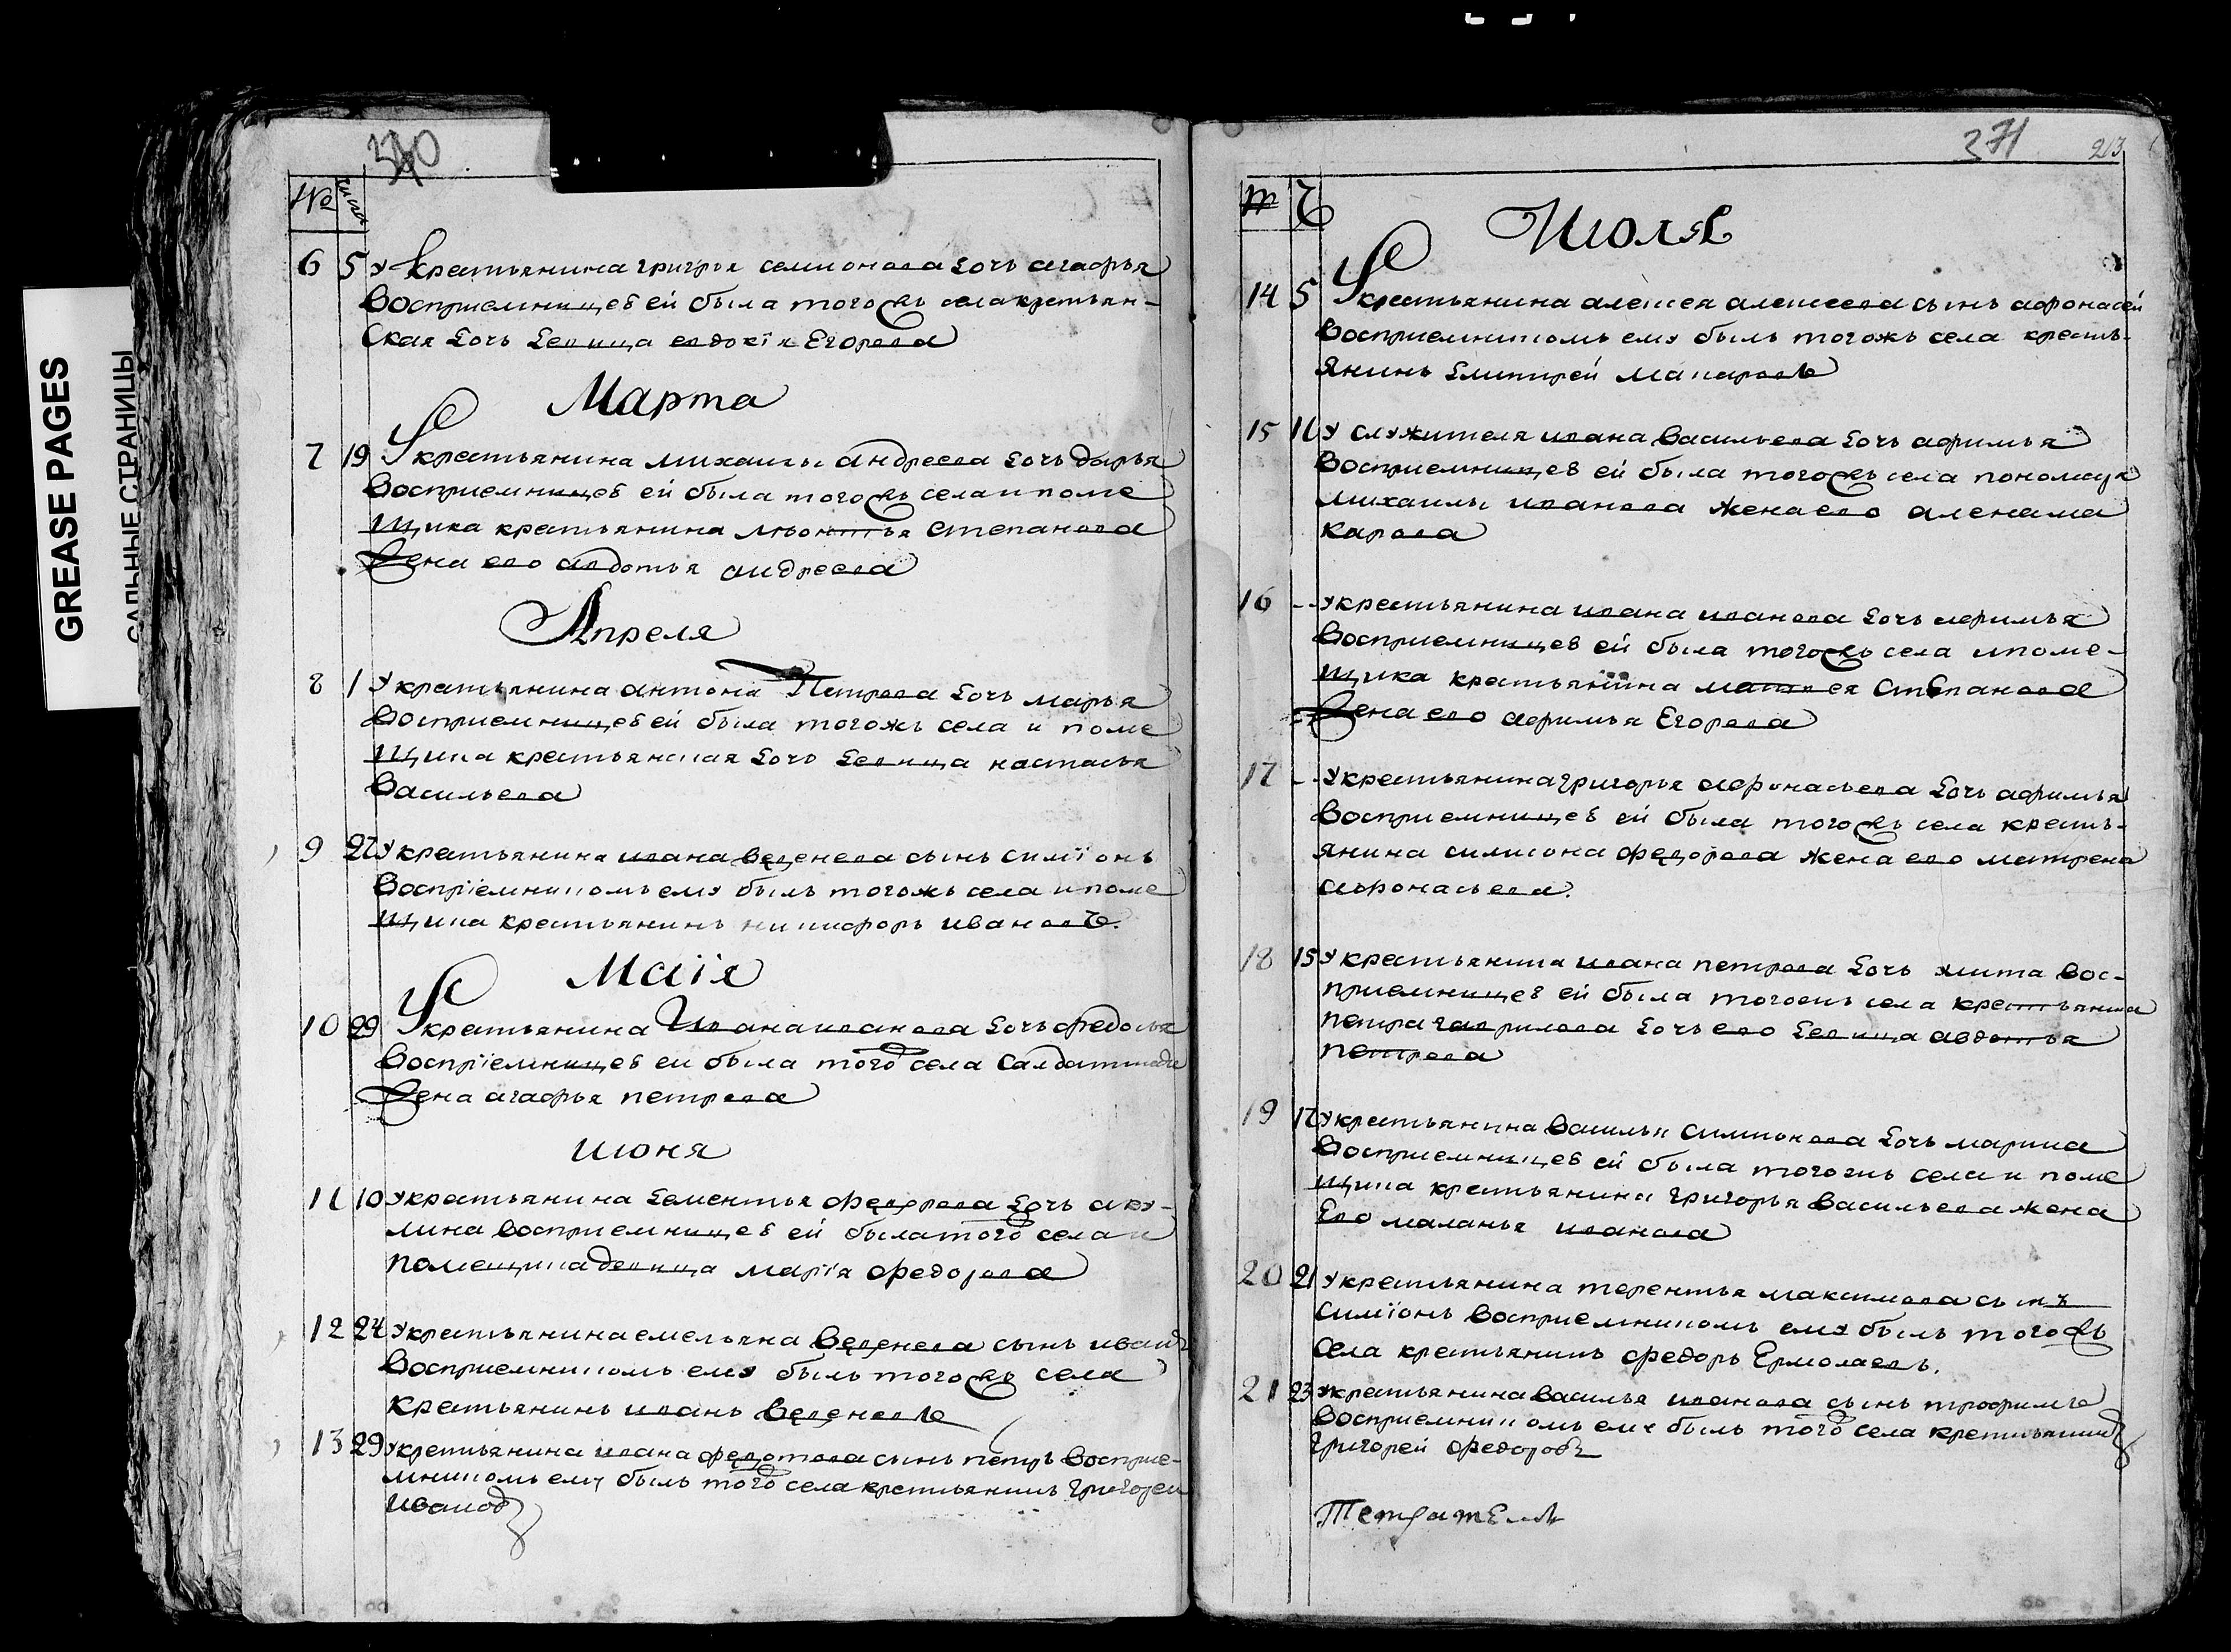 GREASE PAGES
САЛЬНЫЕ СТРАНИЦЫ
№ числа
6 5 у крестьянина григорья семионова дочь агафья
восприемницею ей была тогожъ села крестьян-
ская дочь девица евдокïя Егорова
Марта
7 19 У крестьянина михаилы андреева дочь дарья
восприемницею ей была тогожъ села и поме
щика крестьянина леонтья степанова
жена ево авдотья андреева
Апреля
8 1 У крестьянина антона Петрова дочь марья
восприемницею ей была тогожъ села и поме
щика крестьянская дочь девица настасья
васильева
9 27 У крестьянина ивана веденеева сынъ симïонъ
воспрïемникомъ ему былъ тогожъ села и поме
щика крестьянинъ никифоръ ивановъ.
Маïя
10 29 У крестьянина Ивана иванова дочь федосья
воспрïемницею ей была того села салдатская
жена агафья петрова
июня
11 10 У крестьянина дементья федорова дочь аку-
лина восприемницею ей была того села и
помещика девица марïя федорова
12 24 У крестьянина емельяна веденеева сынъ иванъ
восприемникомъ ему былъ тогожъ села
крестьянинъ иванъ веденеевъ
13 29 У крестьянина ивана федотова сынъ петръ восприе-
мникомъ ему былъ того села крестьянинъ григорей
ивановъ
371 213
Ч
Июля
14 5 У крестьянина алексея алексеева сынъ афонасей
восприемникомъ ему былъ тогожъ села кресть-
янинъ дмитрей макаровъ
15 11 У служителя ивана васильева дочь афимья
восприемницею ей была тогожъ села пономаря
михаилы иванова жена ево алена ма
карова
16 - - У крестьянина ивана иванова дочь афимья
восприемницею ей была тогожъ села и поме-
щика крестьянина матвея степанова
жена ево афимья Егорова
17 - - У крестьянина григорья афонасьева дочь афимья
восприемницею ей была тогожъ села кресть-
янина симиона федорова жена ево матрена
афонасьева.
18 15 У крестьянина ивана петрова дочь вос-
приемницею ей была тогожъ села крестьянина
петра гаврилова дочь ево девица авдотья
петрова
19 17 У крестьянина василья симионова дочь марина
восприемницею ей была тогожъ села и поме
щика крестьянина григорья васильева жена
Ево маланья иванова
20 21 У крестьянина терентья максимова сынъ
симïонъ восприемникомъ ему былъ тогожъ
села крестьянинъ федоръ Ермолаевъ.
21 23 У крестьянина василья иванова сынъ трофимъ
восприемникомъ ему былъ того села крестьянинъ
григорей федоровъ